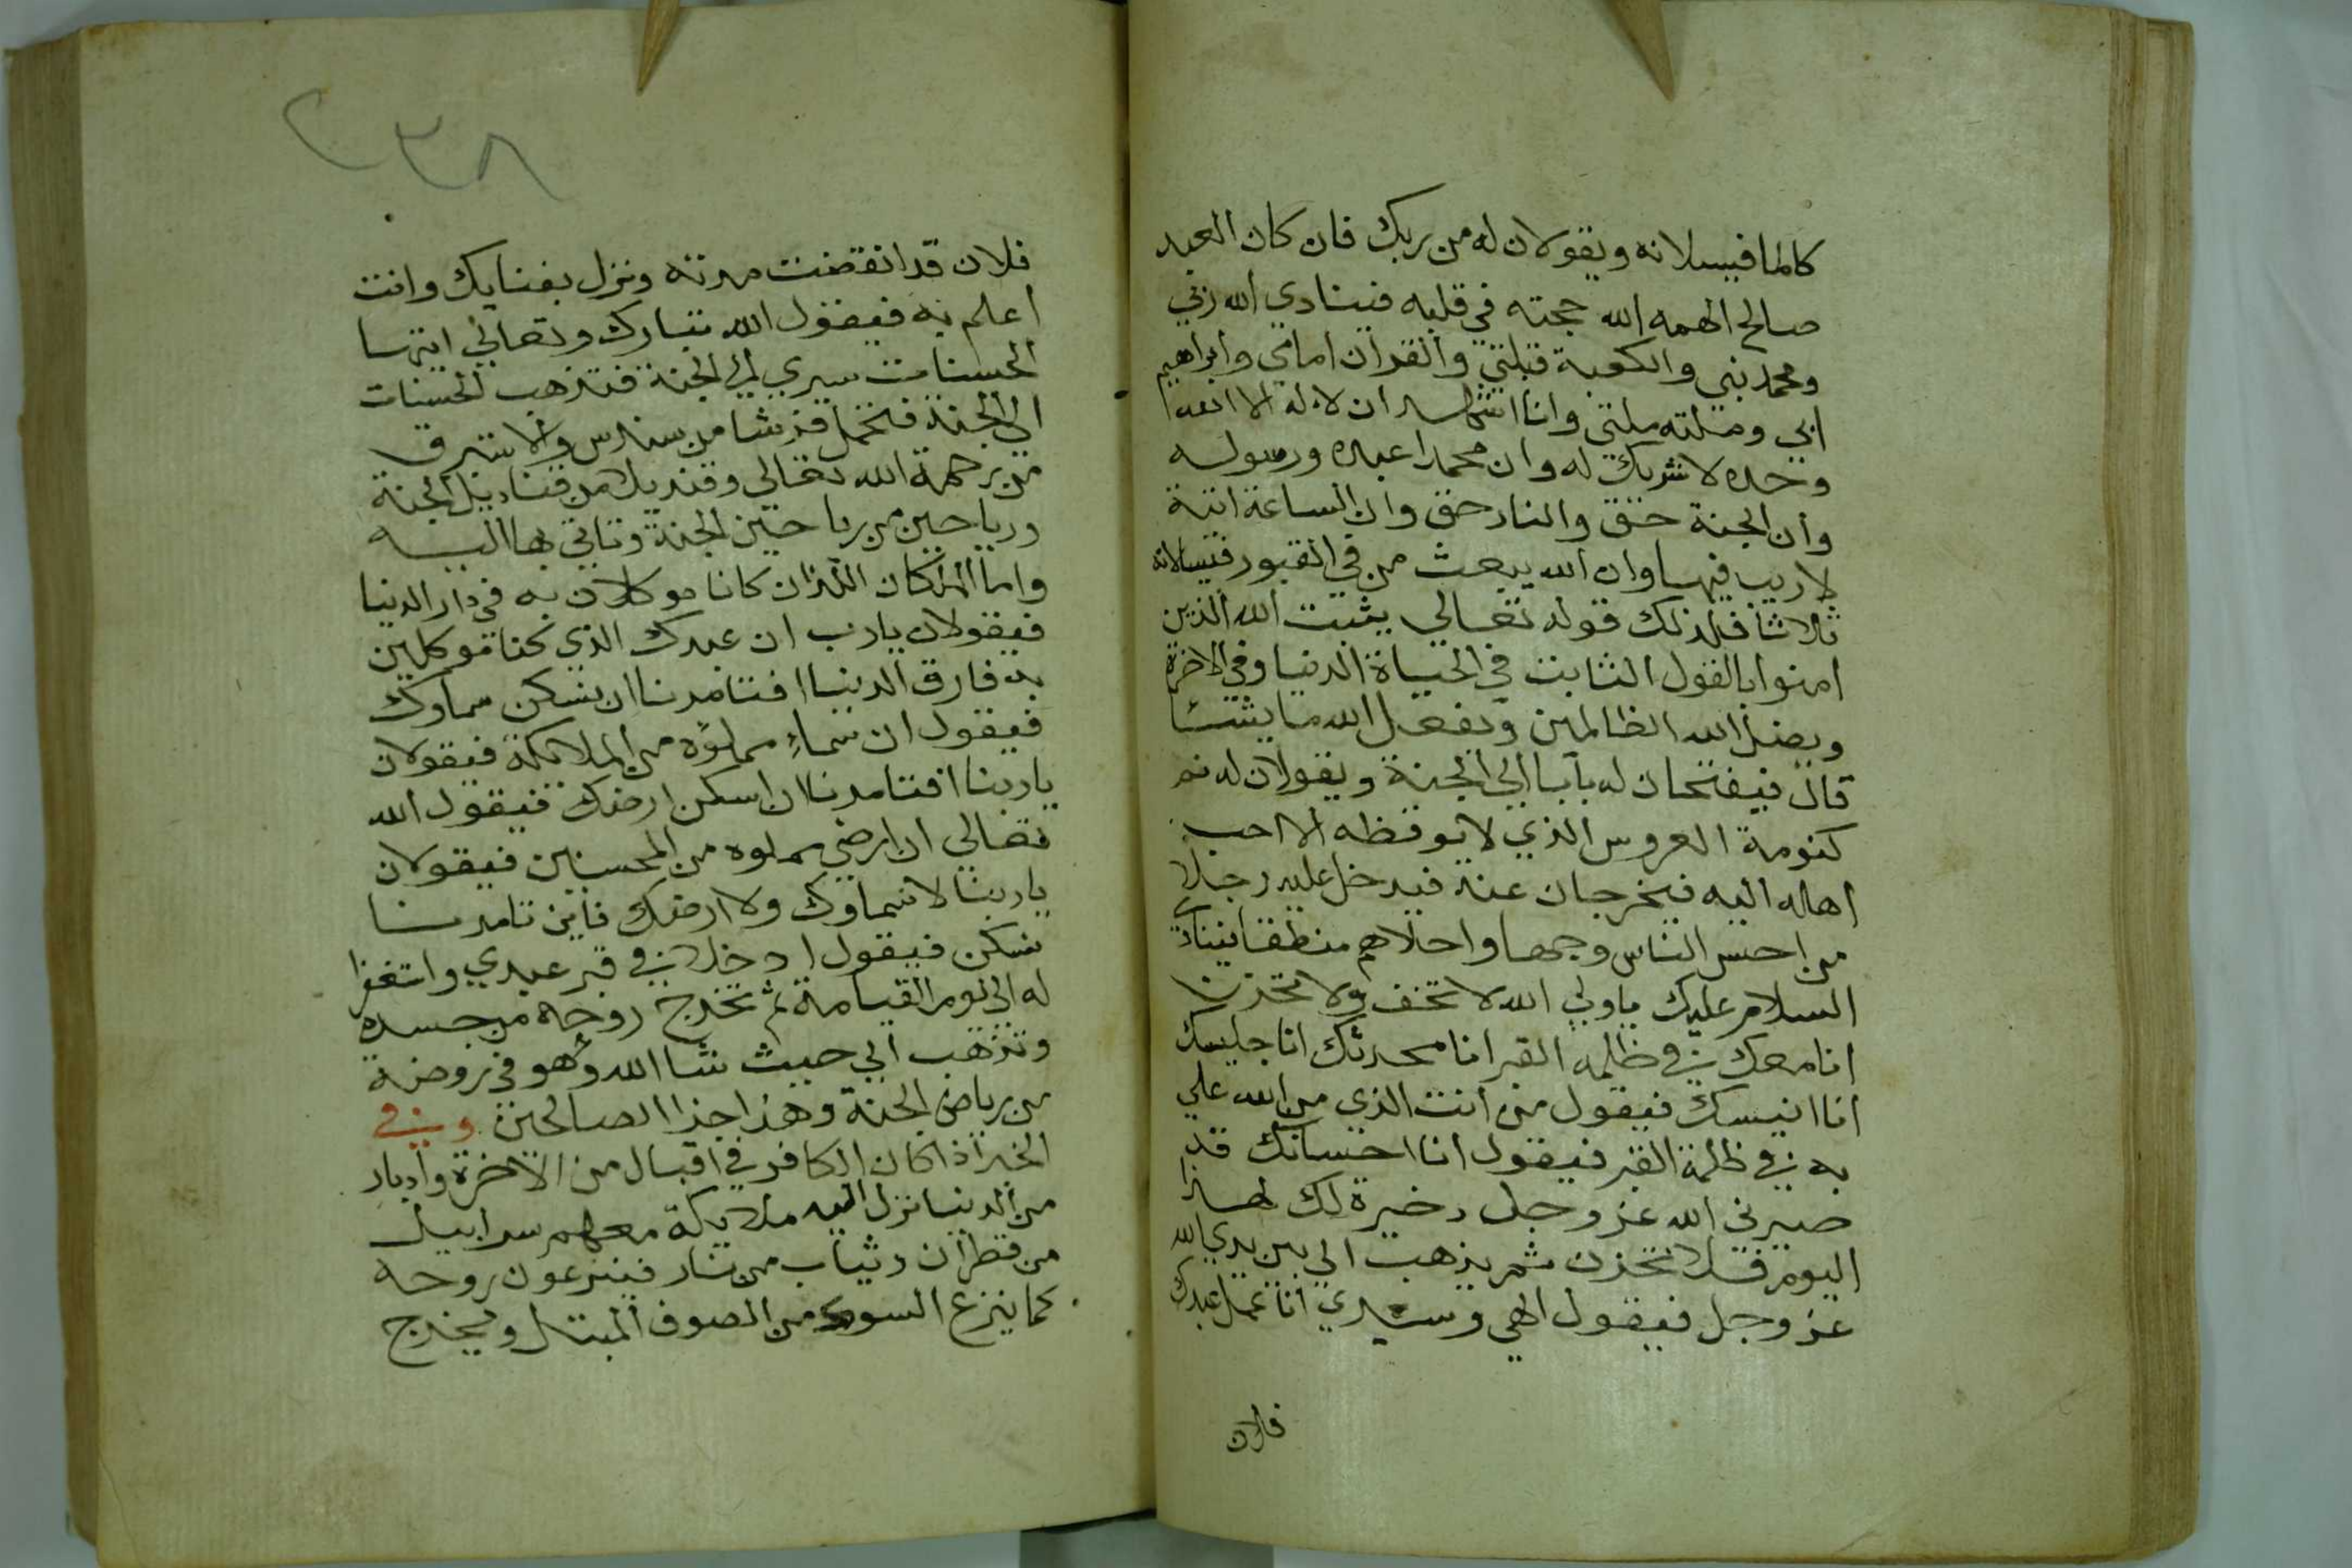 كالما فيسلانه ويقولان له من ربك فان كان العبد
صالح الهمه الله حجته في قلبه فينادي الله ربي
ومحمد نبي والكعبة قبلتي والقران امامي وابراهيم
ابي وملته ملتي وانا اشهد ان لا اله الا الله
وحده لا شريك له وان محمدا عبده ورسوله
وان الجنة حق والنار حق وان الساعة اتية
لا ريب فيها وان الله يبعث من في القبور فيسالانه
ثلاثا فلذلك قوله تعالي يثبت الله الذين
امنوا بالقول الثابت في الحياة الدنيا وفي الاخرة
ويضل الله الظالمين ويفعل الله ما يشا
قال فيفتحان له بابا الي الجنة ويقولان له نم
كنومة العروس الذي لا يوقظه الا احب
اهله اليه فيخرجان عنه فيدخل عليه رجلا
من احسن الناس وجها واحلاهم منطقا
السلام عليك ياولي الله لا تخف ولا تحزن
انا معك في ظلمه القبر انا محدثك انا جليسك
انا انيسك فيقول من انت الذي من الله علي
به في ظلمة القبر فيقول انا احسانك قد
صيرني الله عز وجل دخيرة لك لهذا
اليوم فلا تحزن ثم يذهب الي بين يدي الله
عز وجل فيقول الهي وسيدي انا عمل عبدك
فلان
٢٣٨
فلان قد انقضت مدته ونزل بفنايك وانت
اعلم به فيقول الله تبارك وتعالي ايتها
الحسنات سيري الي الجنة فتذهب الحسنات
الي الجنة فتحمل فرشا من سندس والاستبرق
من رحمة الله تعالي وقنديلا من قناديل الجنة
ورياحين من رياحين الجنة وتاتي بها اليه
واما الملكان اللذان كانا موكلان به في دار الدنيا
فيقولان يارب ان عبدك الذي كنا موكلين
به فارق الدنيا افتامرنا ان نسكن سماوك
فيقول ان سماء مملوه من الملايكة فيقولان
ياربنا افتامرنا ان اسكن ارضك فيقول الله
تعالي ان ارضي مملوه من المحسنين فيقولان
ياربنا لا سماوك ولا ارضك فاين تامرنا
نسكن فيقول ادخلا في قبر عبدي واستغفرا
له الي يوم القيامة ثم تخرج روحه من جسده
وتذهب الي حيث شا الله وهو في روضة
من رياض الجنة وهذا جزا الصالحين وفي
الخبر اذا كان الكافر في اقبال من الاخرة وادبار
من الدنيا نزل اليه ملايكة معهم سرابيل
من قطران وثياب من نار فينزعون روحه
كما ينزع السوك من الصوف المبتل ويخرج